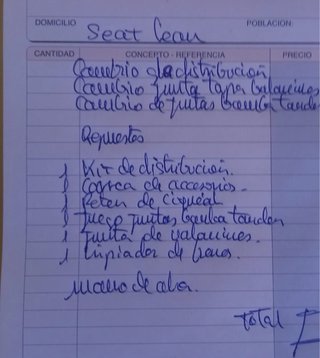 DOMICILIO POBLACIÓN:
Seat Lean
CANTIDAD CONCEPTO - REFERENCIA PRECIO
Cambio de distribución
Cambio junta tapa balancines
Cambio de juntas bomba tanden
Repuestos
1 Kit de distribucion.
1 Correa de accesorios.
1 Reten de cigueñal
1 Juego juntas bomba tanden
1 Junta de balancines.
1 Limpiador de frenos.
Mano de obra.
Total